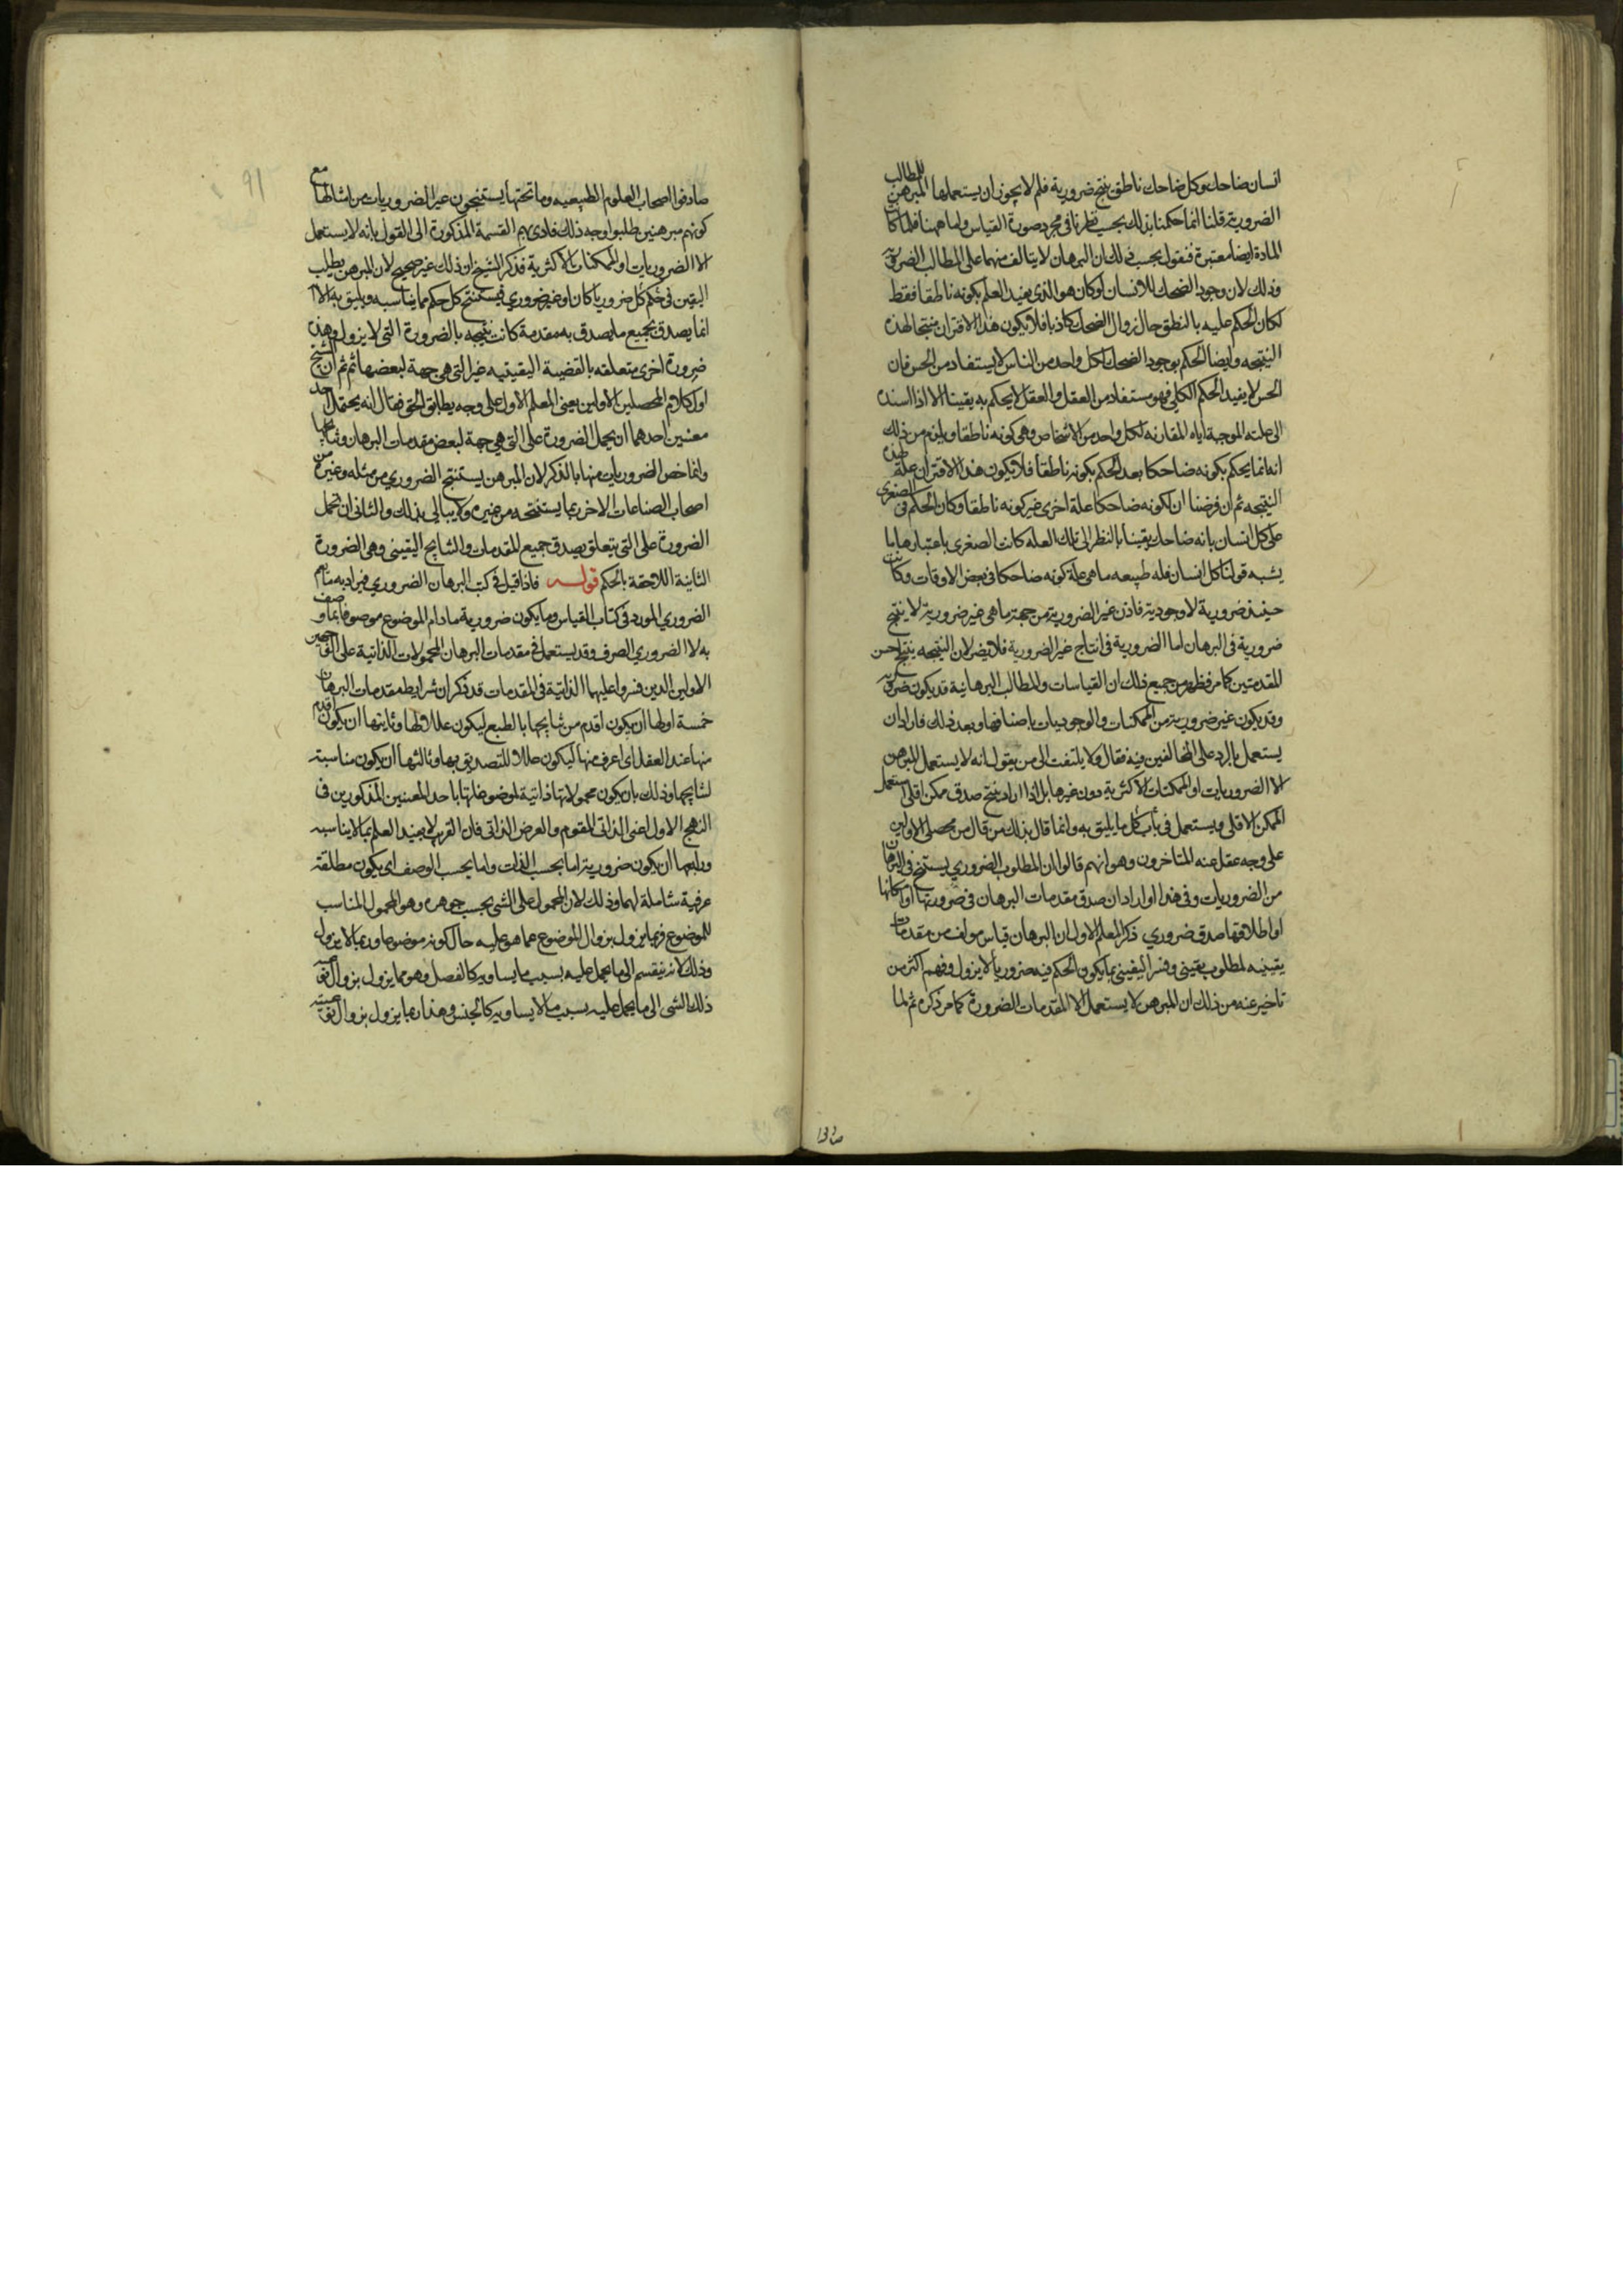 انسان ضاحك وكل ضاحك ناطق ينتج ضرورية فلم لا يجوز ان يستعملها المبرهن للمطالب
الضرورية قلنا انما حكمنا بذلك بحسب نظرنا في مجرد صورة القياس ولما ههنا فلما كانت
المادة ايضا معتبرة فنقول بحسب ذلك ان البرهان لا يتالف منهما على المطالب الضرورية
وذلك لان وجود الضحك للانسان لو كان هو الذي يفيد العلم بكونه ناطقا فقط
لكان الحكم عليه بالنطق حال زوال الضحك كاذبا فلا يكون هذا الاقتران منتجا لهذه
النتيجه وايضا الحكم بوجود الضحك لكل واحد من الناس لا يستفاد من الحس فان
الحس لا يفيد الحكم الكلي فهو مستفاد من العقل والعقل لا يحكم به يقينا الا اذا اسنده
الى علته الموجبة اياه المقارنه لكل واحد من الاشخاص وهي كونه ناطقا ويلزم من ذلك
انه انما يحكم بكونه ضاحكا بعد الحكم بكونه ناطقا فلا يكون هذا الاقتران علة لهذه
النتيجه ثم ان فرضنا ان لكونه ضاحكا علة اخرى غير كونه ناطقا وكان الحكم في الصغرى
على كل انسان بانه ضاحك يقينا بالنظر الى تلك العله كانت الصغرى باعتبارها ما
يشبه قولنا كل انسان فله طبيعه ما هي علة كونه ضاحكا في بعض الاوقات وكانت
حينئذ ضرورية لا وجودية فاذن غير الضرورية من جهة ما هي غير ضرورية لا ينتج
ضرورية في البرهان اما الضرورية في انتاج غير الضرورية فلا يضر لان النتيجه يتبع اخس
المقدمتين كما مر فظهر من جميع ذلك ان القياسات والمطالب البرهانية قد يكون ضرورية
وقد يكون غير ضرورية من الممكنات والوجوديات باصنافها وبعد ذلك فاراد ان
يستعمل بالرد على المخالفين فيه فقال ولا يلتفت الى من يقول انه لا يستعمل المبرهن
الا الضروريات او الممكنات الاكثرية دون غيرها بل اذا اراد ينتج صدق ممكن اقلى استعمل
الممكن الاقلى ويستعمل في باب كل ما يليق به وانما قال بذلك من قال من محصلى الاولين
على وجه غفل عنه المتاخرون وهو انهم قالوا ان المطلوب الضروري يستنتج في البرهان
من الضروريات وفي هذا او اراد ان صدق مقدمات البرهان في ضرورتها او امكانها
او اطلاقها صدق ضروري ذكر المعلم الاول ان البرهان قياس مولف من مقدمات
يقينيه لمطلوب يقيني وفسر اليقيني بما يكون الحكم فيه ضروريا لا يزول وفهم اكثر من
تاخر عنه من ذلك ان المبرهن لا يستعمل الا المقدمات الضرورة كما مر ذكره ثم لما
صادفوا
صادفوا اصحاب العلوم الطبيعيه وما تحتها يستنتجون غير الضروريات من امثالها مع
كونهم مبرهنين طلبوا وجه ذلك فادى بهم القسمة المذكورة الى القول بانه لا يستعمل
الا الضروريات او الممكنات الاكثرية فذكر الشيخ ان ذلك غير صحيح لان المبرهن يطلب
اليقين في حكم كل ضروريا كان او غير ضروري فيستنتج كل حكم مما يناسبه ويليق به الا انه
انما يصدق بجميع ما يصدق به مقدمة كانت نتيجه بالضرورة التى لا يزول وهذه
ضرورة اخرى متعلقه بالقضية اليقينيه غير التى هي جهة لبعضها ثم ثم ان الشيخ
اول كلام المحصلين الاولين يعنى المعلم الاول على وجه يطابق الحق فقال انه يحتمل احد
معنيين احدهما ان يحمل الضرورة على التى هي جهة لبعض مقدمات البرهان ونتائجها
وانما خص الضروريات منها بالذكر لان المبرهن يستنتج الضروري من مثله وغيره من
اصحاب الصناعات الاخر ربما يستنتجه من غيره ولا يبالى بذلك والثانى ان يحمل
الضرورة على التى يتعلق بصدق جميع المقدمات والنتايج اليقينى وهى الضرورة
الثانية اللاحقة بالحكم قوله فاذا قيل في كتب البرهان الضروري فيراد به ما يعم
الضروري المورد في كتاب القياس وما يكون ضرورية مادام الموضوع موصوفا بما وصف
به لا الضروري الصرف وقد يستعمل في مقدمات البرهان المحمولات الذاتية على الوجهين
الاولين الذين فسروا عليهما الذاتية في المقدمات قد ذكر ان شرايط مقدمات البرهان
خمسة اولها ان يكون اقدم من نتايجها بالطبع ليكون عللا لها وثانيتها ان يكون اقدم
منها عند العقل اى اعرف منها ليكون عللا للتصديق بها وثالثها ان يكون مناسبة
لنتايجها وذلك بان يكون محمولاتها ذاتية لموضوعاتها باحد المعنيين المذكورين في
النهج الاول اعنى الذاتى المقوم والعرض الذاتى فان الغريب لا يفيد العلم بما لا يناسبه
ورابعها ان يكون ضرورية اما بحسب الذات واما بحسب الوصف اى يكون مطلقة
عرفية شاملة لهما وذلك لان المحمول على الشى بحسب جوهره وهو المحمول المناسب
للموضوع فربما يزول بزوال الموضوع عما هو عليه حال كونه موضوعا وربما لا يزول
وذلك لانه ينقسم الى ما يحمل عليه بسبب ما يساويه كالفصل وهو مما يزول بزوال نوعية
ذلك الشى الى ما يحمل عليه بسبب ما لا يساويه كالجنس وهذا ربما يزول بزوال نوعيته